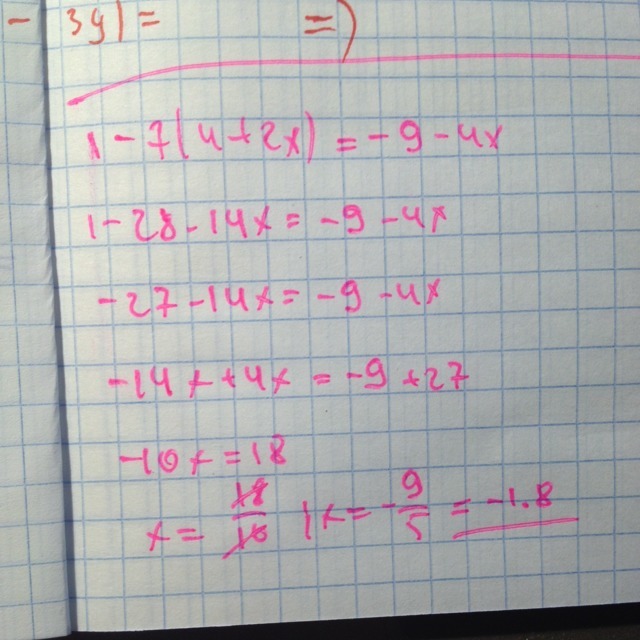 - 3y) = =)
1 - 7(4+2x) = -9 - 4x
1 - 28 - 14x = -9 - 4x
-27 - 14x = -9 - 4x
-14x + 4x = -9 + 27
-10x = 18
x = - 18/10 | x = - 9/5 = -1.8